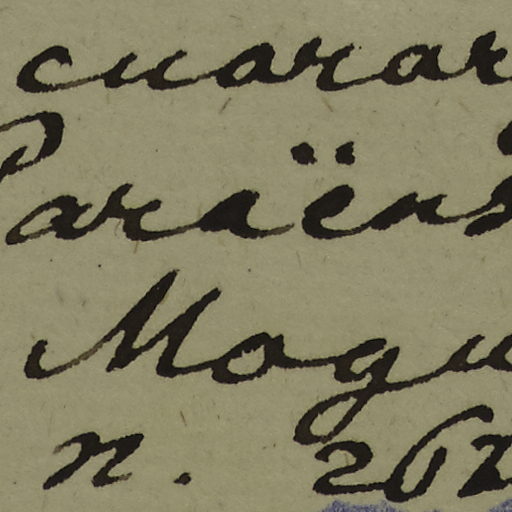 cuarar
Paraëns
Mogu
n. 262